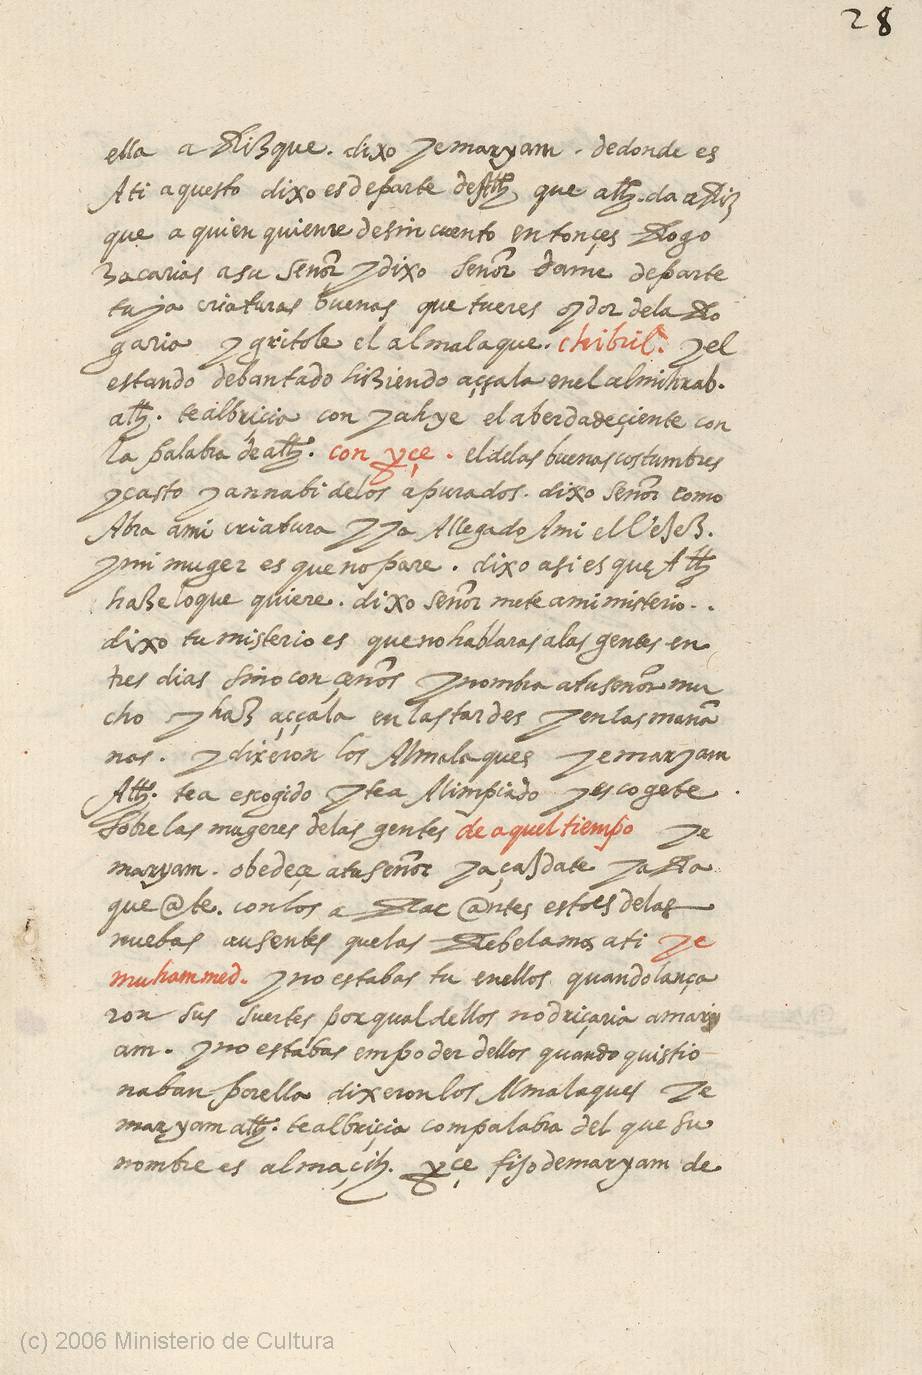 28
ella a Rizque. dixo ye maryam. de donde es
A ti aquesto dixo es de parte de Allh que allh. da a Riz
que a quien quiere de sin cuento entonçes Rogo
Zacarias a su Señor y dixo Señor dame de parte
tuya criaturas buenas que tu eres oydor de la Ro
garia y gritole el almalaque. chibril. y el
estando debantado hiziendo aççala en el almihrab.
allh. te albriçia con yahye el aberdadeçiente con
la palabra de allh. con yçe. el d las buenas costumbres
y casto y annabi de los apurados. dixo Señor como
Abra a mi criatura y ya Allegado A mi el la bejez.
y mi muger es que no pare. dixo asi es que Allh
haze lo que quiere. dixo Señor mete a mi misterio..
dixo tu misterio es que no hablaras a las gentes en
tres dias sino con çeños y nombra a tu señor mu
cho y haz aççala en las tardes y en las maña
nas. y dixeron los Almalaques ye maryam
Allh. te a escogido y te a Alimpiado y escogete
sobre las mugeres de las gentes de aquel tiempo ye
maryam. obedeçe a tu señor y açaxdate y aRa
que@te. con los aRac@ntes esto es de las
nuebas ausentes que las Rebelamos a ti ye
muhammed. y no estabas tu en ellos quando lança
ron sus suertes por qual dellos nodriçaria a mary
am. y no estabas em poder dellos quando quistio
naban por ella dixeron los Almalaques ye
maryam allh. te albriçia com palabra del que su
nombre es almaçih. yçe fijo de maryam de
(c) 2006 Ministerio de Cultura